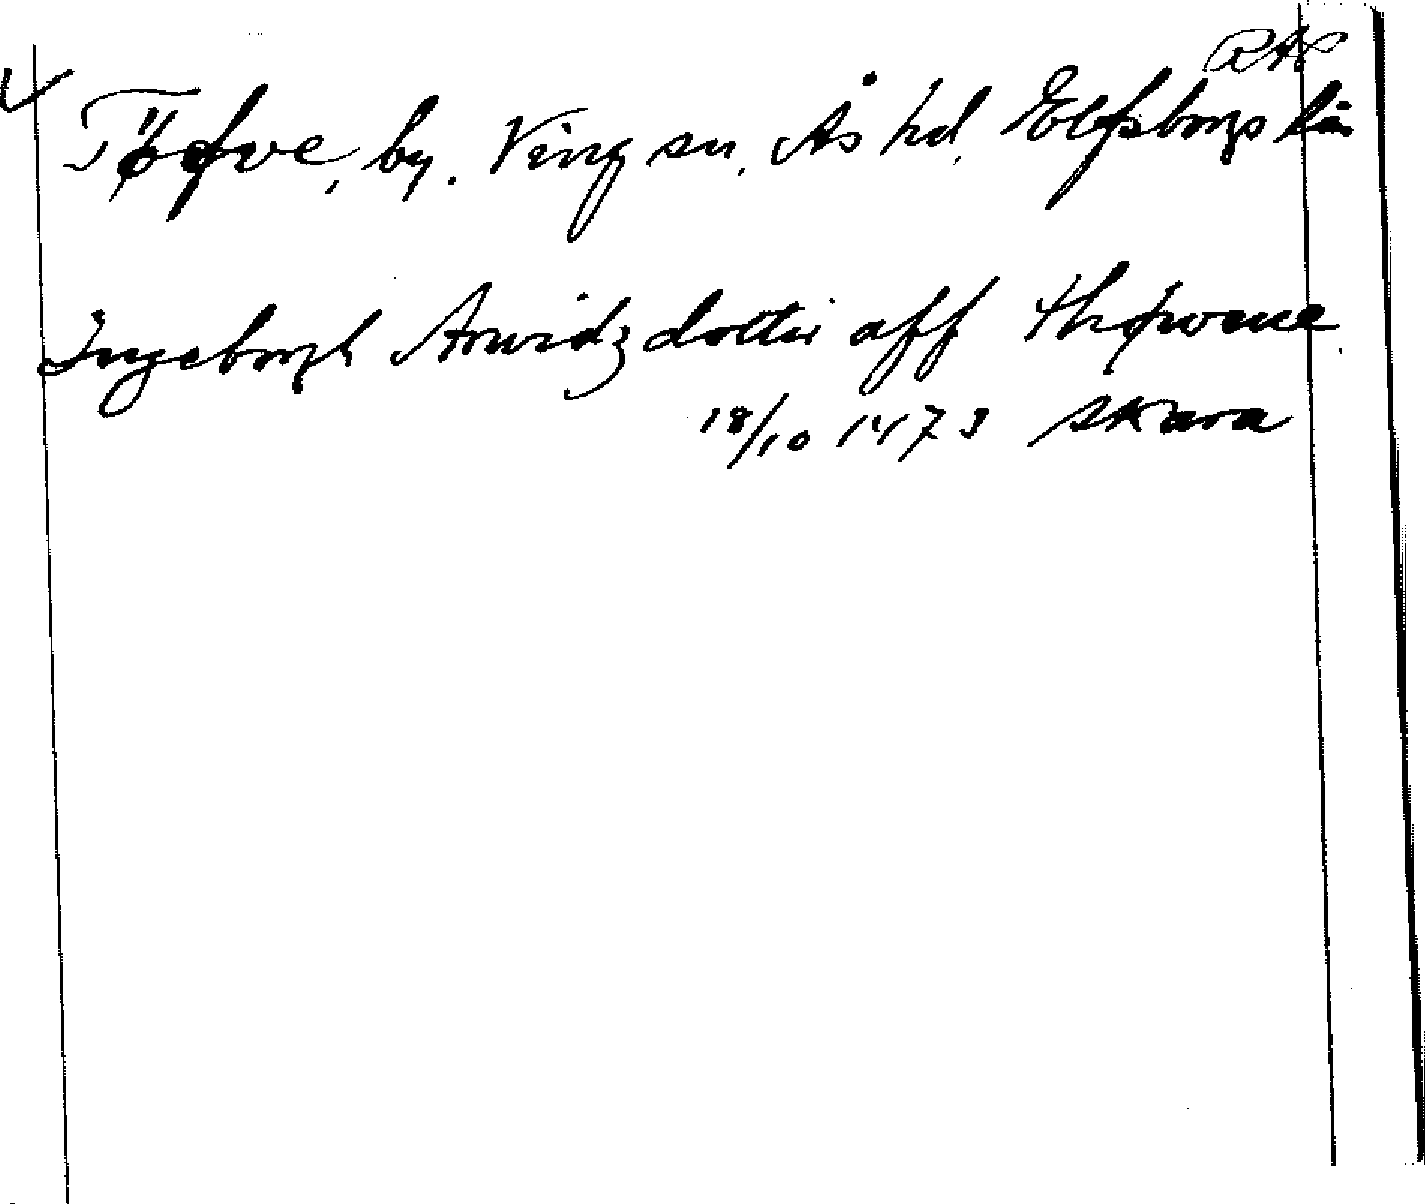 RAP
Töfve, by. Ving sn, Ås hd, Elfsborgs län
Ingeborgh Arwidz dotter aff thøwene
18/10 1473 Skara